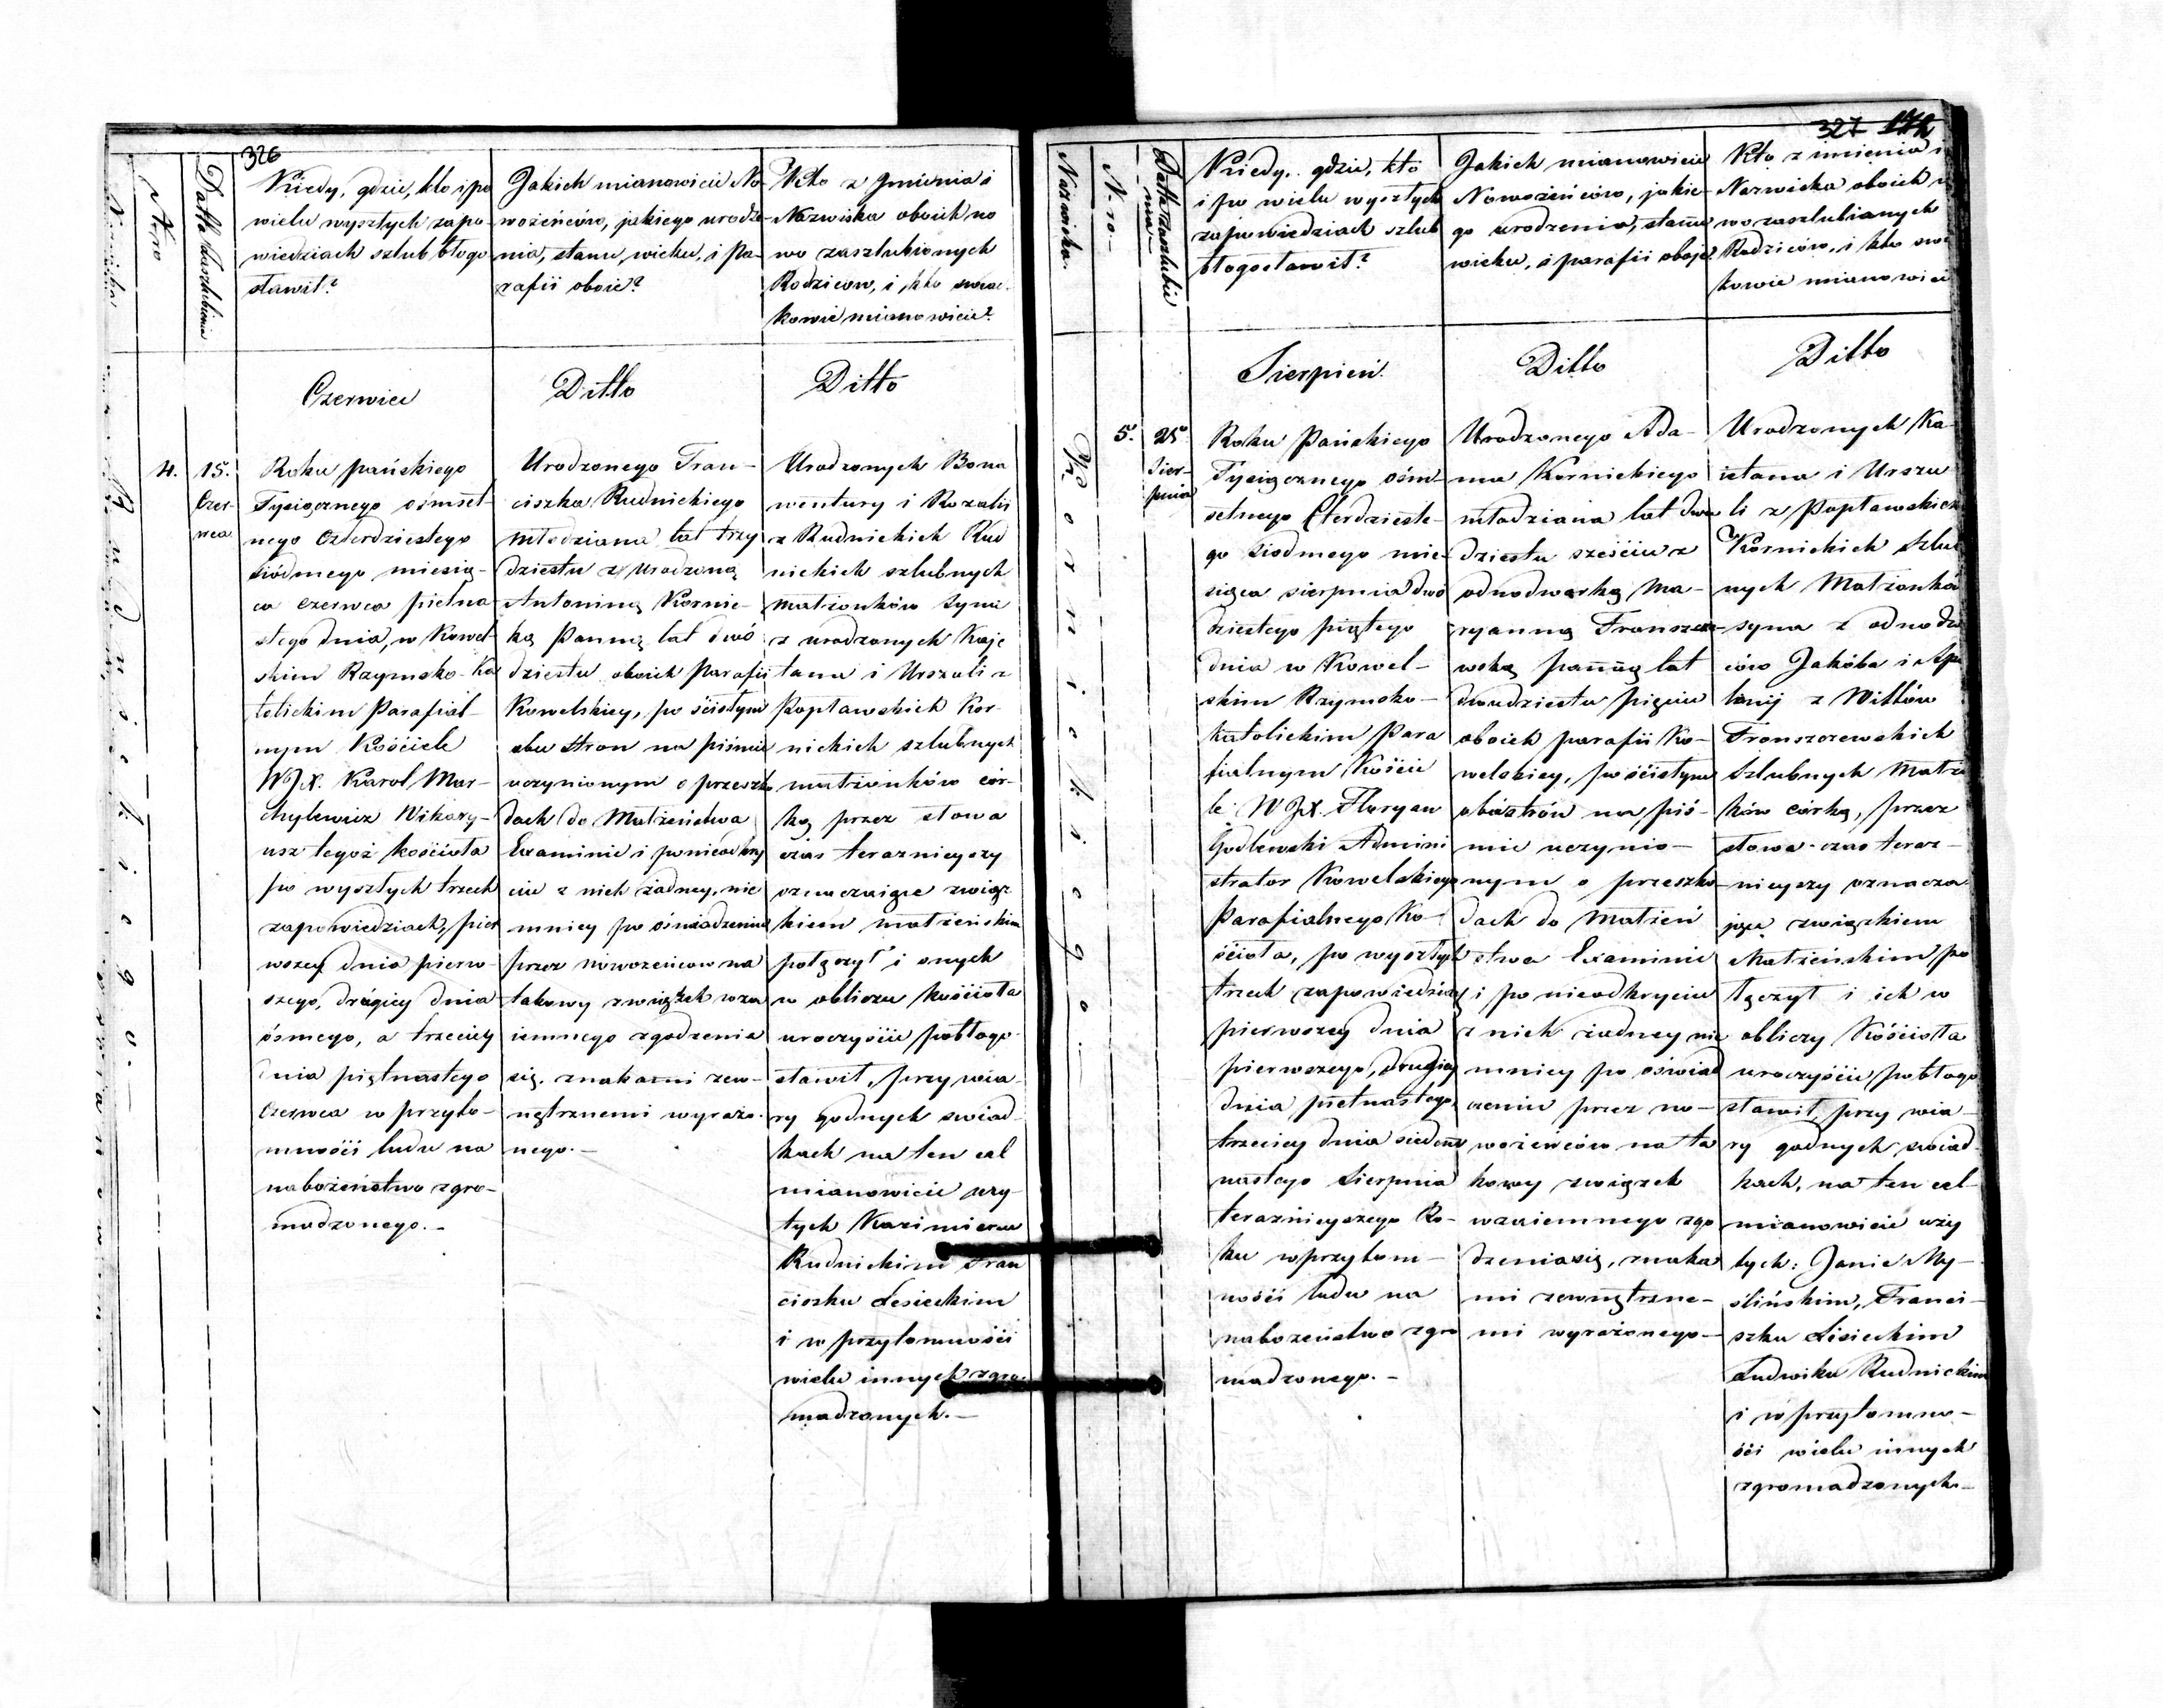 326
Nazwiska.
N-ro
Datta zaszlubienia
Kiedy, gdzie, kto i po
wielu wyszłych zapo
wiedziach szlub błogo
sławił?
Jakich mianowicie No-
wożeńców, jakiego urodze-
nia, stanu, wieku, i pa-
rafii oboie?
Kto z Jmienia i
Nazwiska oboich no
wo zaszlubionych
Rodziców, i kto swiad-
kowie mianowicie?
Czerwiec
Ditto
Ditto
Rudnickiego.
4.
15.
Czer-
wca
Roku pańskiego
Tysiącznego ośmset-
nego czterdziestego
siódmego miesią-
ca czerwca piętna
stego dnia, w Kowel-
skim Rzymsko-Ka
tolickim Parafial-
nym Kościele
WJX. Karol Mar-
chylewicz Wikary-
usz tegoż kościoła
po wyszłych trzech
zapowiedziach, pier
wszey dnia pierw-
szego, drugiey dnia
ósmego, a trzeciey
dnia piętnastego
Czerwca w przyto-
mności ludu na
nabożeństwo zgro-
madzonego.-
Urodzonego Fran-
ciszka Rudnickiego
młodziana lat trzy
dziestu z Urodzoną
Antoniną Kornic-
ką Panną lat dwó
dziestu oboich Parafii
Kowelskiey, po ścisłym
obu stron na piśmie
uczynionym o przeszko
dach do Małżeństwa
Examinie i ponieodkry
ciu z nich żadney, nie
mniey po oświadczeniu
przez nowożeńców na
takowy związek wza
iemnego zgodzenia
się, znakami zew-
nętrznemi wyrażo-
nego.-
Urodzonych Bona
wentury i Rozalii
z Rudnickich Rud
nickich szlubnych
małżonków syna
z urodzonych Kaje
tana i Urszuli z
Popławskich Kor-
nickich szlubnych
małżonków cór-
ką przez słowa
czas teraznieyszy
oznaczaiące związ
kiem małżeńskim
połączył i onych
w obliczu kościoła
uroczyście pobłogo-
sławił, przy wia-
ry godnych swiad-
kach na ten cel
mianowicie uży-
tych Kazimierzu
Rudnickim Fran
ciszku Lesieckim
i w przytomności
wielu innych zgro-
madzonych.-
327 172
Nazwiska.
N-ro.
Datta zaszlubie
nia
Kiedy, gdzie, kto
i po wielu wyszłych
zapowiedziach szlub
błogosławił?
Jakich mianowicie
Nowożeńców, jakie-
go urodzenia, stanu
wieku, i parafii oboje?
Kto z imienia i
Nazwiska oboich
wo zaszlubianych
Rodziców, i kto swi
kowie mianowici
Sierpień.
Ditto
Ditto
Kornickiego.
5.
25
Sier-
pnia
Roku Pańskiego
Tysiącznego ośm-
setnego Czterdzieste-
go siodmego mie-
siąca sierpnia dwó
dziestego piątego
dnia w Kowel-
skim Rzymsko-
katolickim Para
fialnym Koście
le WJX. Floryan
Godlewski Admini
strator Kowelskiego
Parafialnego Ko-
ścioła, po wyszłych
trzech zapowiedziach
pierwszey dnia
pierwszego, drugiey
dnia piętnastego,
trzeciey dnia siedem
nastego Sierpnia
teraznieyszego Ro-
ku w przytom-
ności ludu na
nabożeństwo zgro
madzonego.-
Urodzonego Ada-
ma Kornickiego
młodziana lat dwu
dziestu sześciu z
odnodworką Ma-
ryanną Fronszcze-
wską panną lat
dwudziestu pięciu
oboich parafii Ko-
welskiey, po ścisłym
obu strón na piś-
mie uczynio-
nym o przeszko-
dach do Małżeń
stwa Examinie
i po nieodkryciu
z nich żadney nie
mniey po oświad
czeniu przez no-
wożeńców na ta
kowy związek
wzaiemnego zgo
dzenia się, znaka
mi zewnętrzne-
mi wyrażonego-
Urodzonych Ka-
ietana i Urszu
li z Popławskich
Kornickich szlub
nych Małżonków
syna z odnodw
ców Jakóba i Apo
lonij z Wittów
Fronszczewskich
szlubnych Małż
ków córką, przez
słowa czas teraz-
nieyszy oznacza-
jące związkiem
Małżeńskim po
łączył i ich w
obliczy Kościoła
uroczyście pobłogo
sławił przy wia-
ry godnych swiad-
kach, na ten cel
mianowicie uży
tych: Janie My-
ślińskim, Franci-
szku Lisieckim
Ludwiku Rudnickim
i w przytomno-
ści wielu innych
zgromadzonych.-